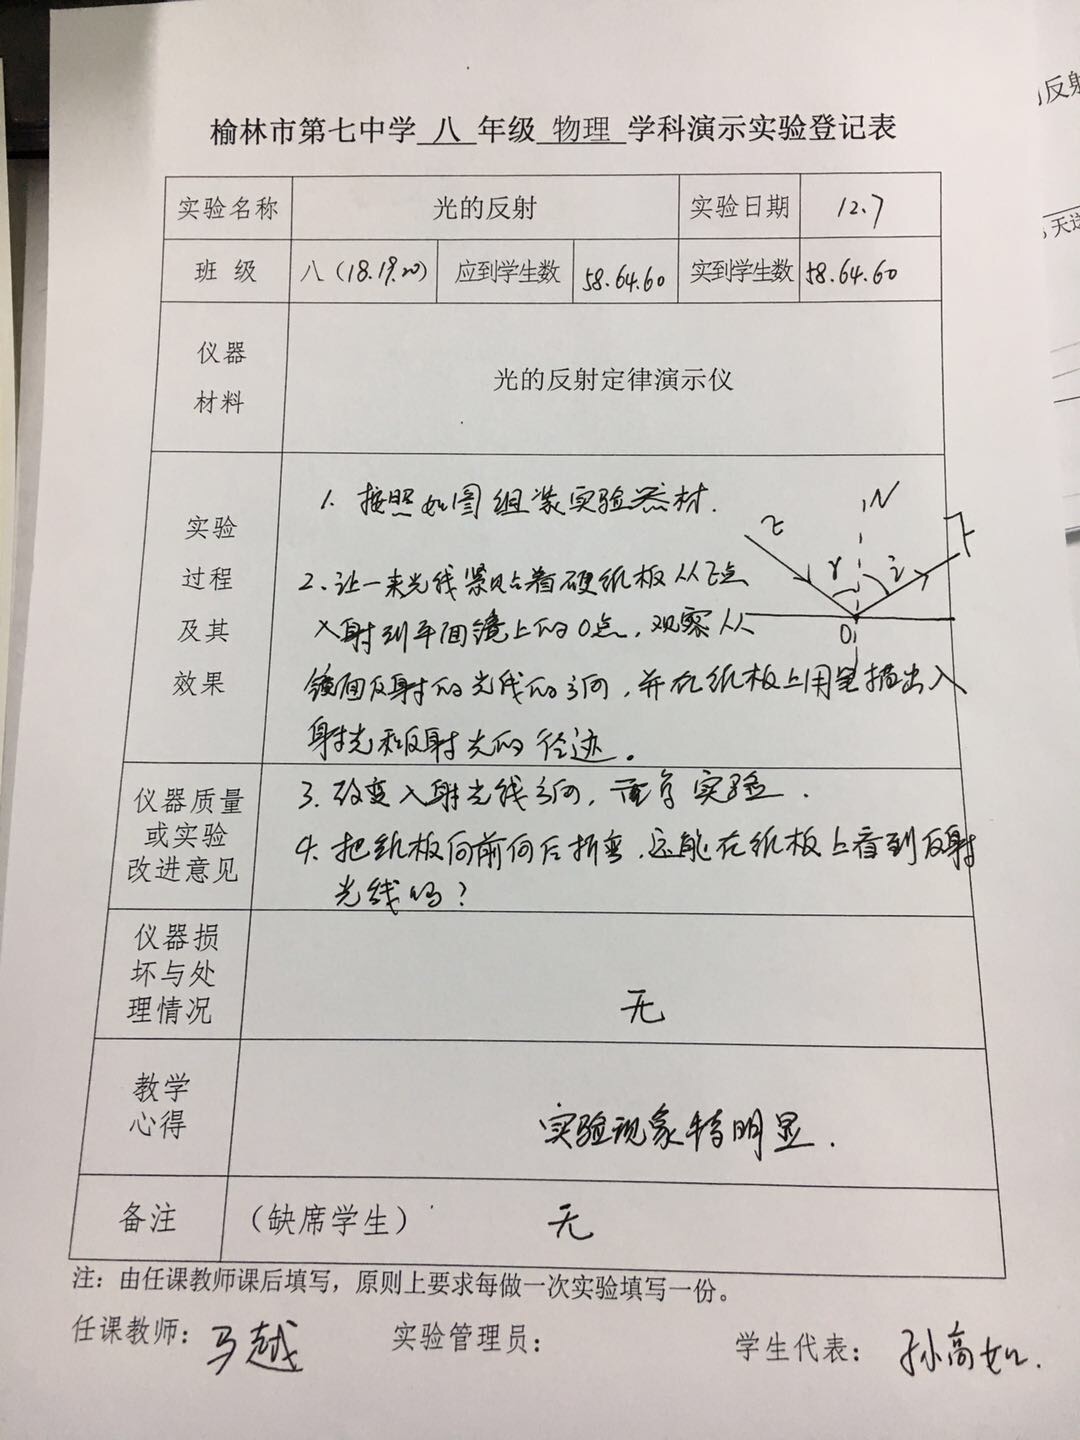 榆林市第七中学 八 年级 物理 学科演示实验登记表
实验名称 光的反射 实验日期 12.7
班 级 八（18.19.20） 应到学生数 58.64.60 实到学生数 58.64.60
仪器
材料
光的反射定律演示仪
实验
过程
及其
效果
1. 按照如图组装实验器材.
2. 让一束光线紧贴着硬纸板从E点
入射到平面镜上的O点，观察从
镜面反射的光线的方向，并在纸板上用笔描出入
射光和反射光的径迹。
E N F
r i
O
仪器质量
或实验
改进意见
3. 改变入射光线方向，重复实验.
4. 把纸板向前向后折弯，还能在纸板上看到反射
光线吗？
仪器损
坏与处
理情况
无
教学
心得
实验现象特明显.
备注 （缺席学生） 无
注：由任课教师课后填写，原则上要求每做一次实验填写一份。
任课教师：马越 实验管理员： 学生代表：孙高如.
反射